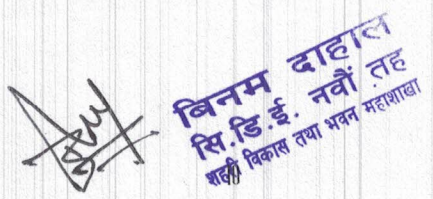 बिनम दाहाल
सि.डि.ई. नवौं तह
शहरी विकास तथा भवन महाशाखा